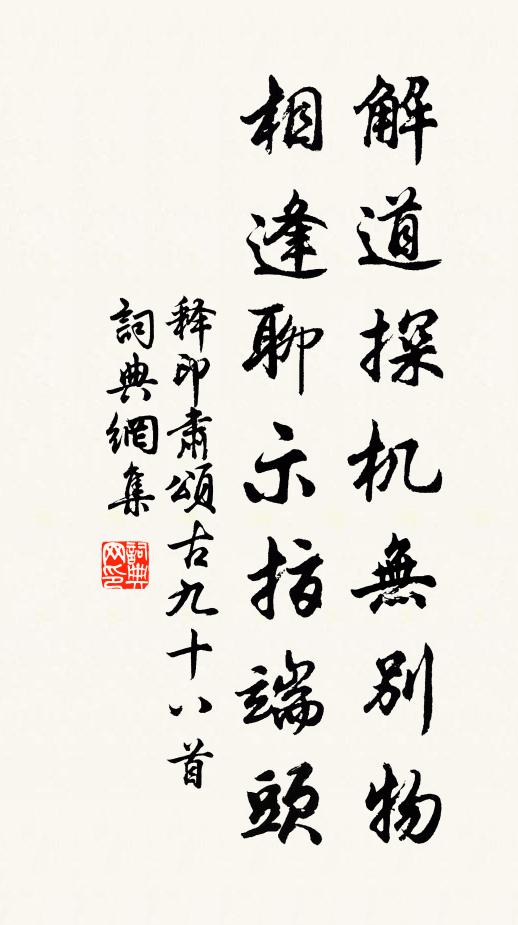 解道探机無别物
相逢聊示指端頭
释印肅頌古九十八首
詞典網集
詞典网印